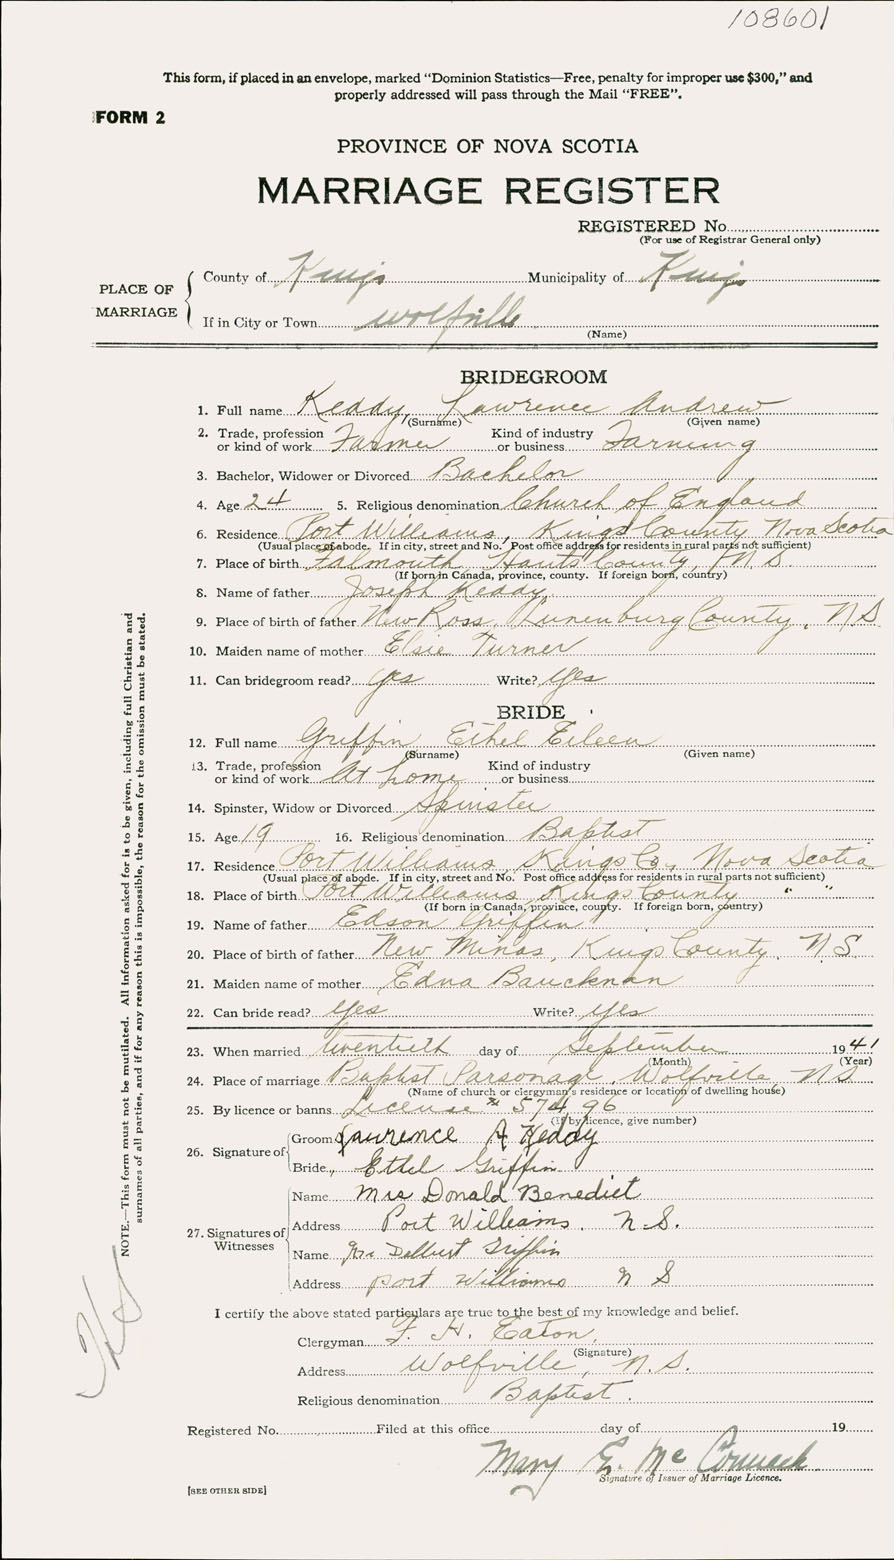 108601
This form, if placed in an envelope, marked “Dominion Statistics—Free, penalty for improper use $300,” and
properly addressed will pass through the Mail “FREE”.
FORM 2
PROVINCE OF NOVA SCOTIA
MARRIAGE REGISTER
REGISTERED No.
(For use of Registrar General only)
PLACE OF MARRIAGE
County of Kings Municipality of Kings
If in City or Town Wolfville
(Name)
BRIDEGROOM
1. Full name Keddy, Lawrence Andrew
(Surname) (Given name)
2. Trade, profession or kind of work Farmer Kind of industry or business Farming
3. Bachelor, Widower or Divorced Bachelor
4. Age 24 5. Religious denomination Church of England
6. Residence Port Williams, Kings County Nova Scotia
(Usual place of abode. If in city, street and No. Post office address for residents in rural parts not sufficient)
7. Place of birth Falmouth Hants County, N.S.
(If born in Canada, province, county. If foreign born, country)
8. Name of father Joseph Keddy
9. Place of birth of father New Ross, Lunenburg County, N.S.
10. Maiden name of mother Elsie Turner
11. Can bridegroom read? yes Write? yes
BRIDE
12. Full name Griffin Ethel Eileen
(Surname) (Given name)
13. Trade, profession or kind of work At home Kind of industry or business
14. Spinster, Widow or Divorced Spinster
15. Age 19 16. Religious denomination Baptist
17. Residence Port Williams Kings Co., Nova Scotia
(Usual place of abode. If in city, street and No. Post office address for residents in rural parts not sufficient)
18. Place of birth Port Williams, Kings County " "
(If born in Canada, province, county. If foreign born, country)
19. Name of father Edson Griffin
20. Place of birth of father New Minas, Kings County, N.S.
21. Maiden name of mother Edna Bauckman
22. Can bride read? yes Write? yes
23. When married twentieth day of September 1941
(Month) (Year)
24. Place of marriage Baptist Parsonage, Wolfville, N.S
(Name of church or clergyman's residence or location of dwelling house)
25. By licence or banns License # 57496
(If by licence, give number)
26. Signature of
Groom Lawrence A Keddy
Bride Ethel Griffin
27. Signatures of Witnesses
Name Mrs Donald Benedict
Address Port Williams. N.S.
Name Mrs Delbert Griffin
Address Port Williams N S
I certify the above stated particulars are true to the best of my knowledge and belief.
Clergyman F. H. Eaton,
(Signature)
Address Wolfville, N.S.
Religious denomination Baptist.
Registered No. Filed at this office day of 19
Mary E. McCormack
Signature of Issuer of Marriage Licence.
[SEE OTHER SIDE]
NOTE.—This form must not be mutilated. All information asked for is to be given, including full Christian and
surnames of all parties, and if for any reason this is impossible, the reason for the omission must be stated.